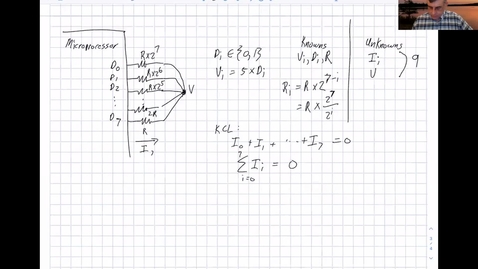 Microporessor
D0 R×2^7
D1 R×2^6
D2 R×2^5
⋮
2R
D7
R
I7
V
Di ∈ {0,1}
Vi = 5×Di
Knowns
Vi, Di, R
Ri = R×2^7-i
= R × 2^7/2^i
Unknowns
Ii
V
9
KCL:
I0 + I1 + ⋯ + I7 = 0
7
∑ Ii = 0
i=0